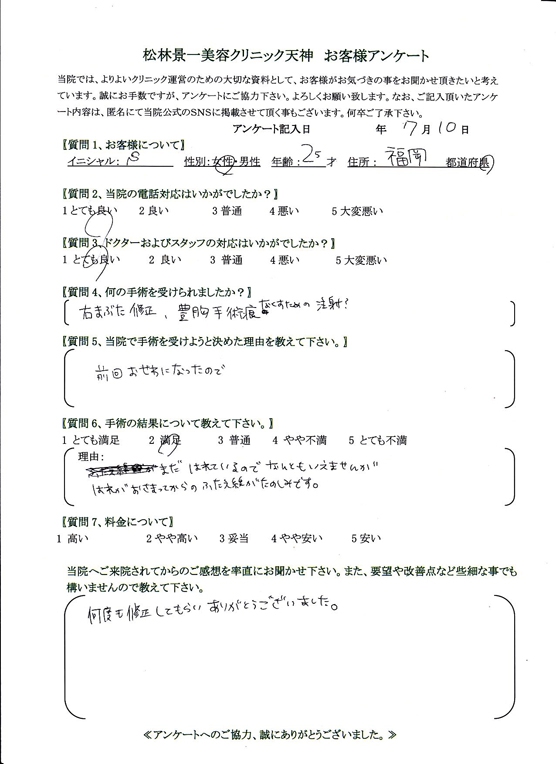 松林景一美容クリニック天神　お客様アンケート
当院では、よりよいクリニック運営のための大切な資料として、お客様がお気づきの事をお聞かせ頂きたいと考え
ています。誠にお手数ですが、アンケートにご協力下さい。よろしくお願い致します。なお、ご記入頂いたアンケ
ート内容は、匿名にて当院公式のSNSに掲載させて頂く事もございます。何卒ご了承下さい。
アンケート記入日　　　年 7 月 10 日
〖質問 1、お客様について〗
イニシャル： S　性別：女性・男性　年齢： 25 才　住所： 福岡　都道府県
〖質問 2、当院の電話対応はいかがでしたか？〗
1 とても良い　2 良い　3 普通　4 悪い　5 大変悪い
〖質問 3、ドクターおよびスタッフの対応はいかがでしたか？〗
1 とても良い　2 良い　3 普通　4 悪い　5 大変悪い
〖質問 4、何の手術を受けられましたか？〗
右まぶた修正、豊胸手術痕なくすための注射?
〖質問 5、当院で手術を受けようと決めた理由を教えて下さい。〗
前回おせわになったので
〖質問 6、手術の結果について教えて下さい。〗
1 とても満足　2 満足　3 普通　4 やや不満　5 とても不満
理由：
まだはれているのでなんともいえませんが
はれがおさまってからのふたえ線がたのしみです。
〖質問 7、料金について〗
1 高い　2 やや高い　3 妥当　4 やや安い　5 安い
当院へご来院されてからのご感想を率直にお聞かせ下さい。また、要望や改善点など些細な事でも
構いませんので教えて下さい。
何度も修正してもらいありがとうございました。
≪アンケートへのご協力、誠にありがとうございました。≫